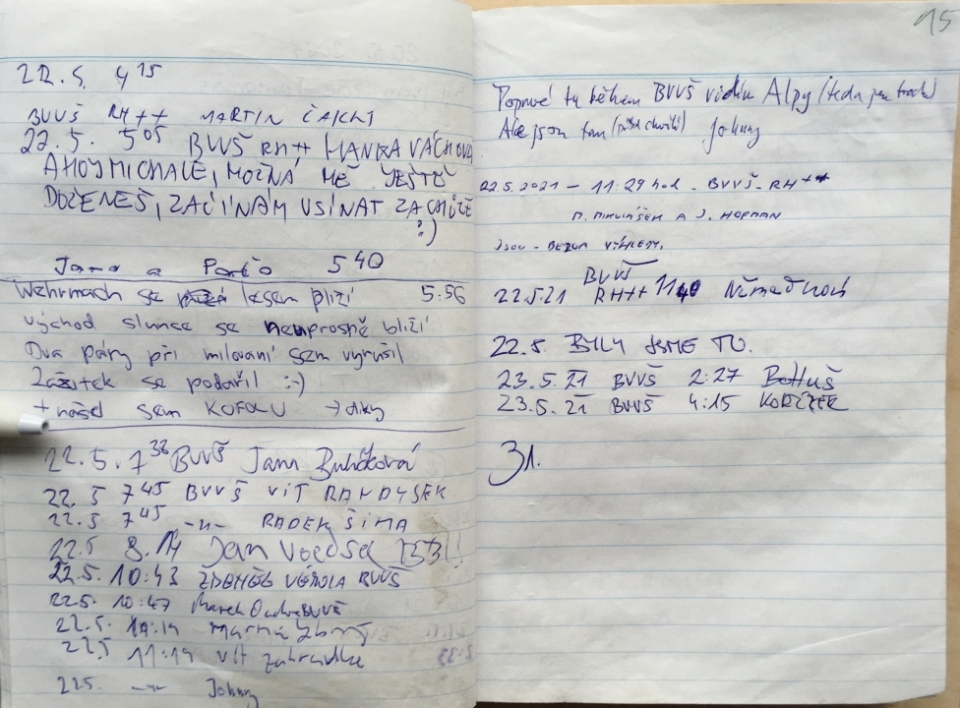 22.5. 4 15
BVVŠ RH++ MARTIN
22.5. 5 05 BVVŠ RH++ HANKA VÁCHOVÁ
AHOJ MICHALE, MOŽNÁ MĚ JEŠTĚ
DOŽENEŠ, ZAČÍNÁM USÍNAT ZA CHŮZE
:)
Jana a 5 40
Wehrmach se lesem plíží 5:56
východ slunce se neuprosně blíží
Dva páry při milovaní sem vyrušil
Zážitek se podařil :-)
+ našel sem KOFOLU → díky
22.5. 7 38 BVVŠ Jana
22.5 7 45 BVVŠ VÍT
22.5 7 45 -"- RADEK ŠÍMA
22.5 8.14 Jan
22.5. 10:43 BVVŠ
22.5. 10:47 Marek BVVŠ
22.5.
22.5 11:19 Vít Zahradka
22.5. -"- Johny
15
Poprvé tu během BVVŠ vidím Alpy (teda jen trochu)
Ale jsou tam Johny
22.5.2021 - 11:29 hod. - BVVŠ - RH++
M. MIKULÁŠEK A J. HOFMAN
JSOU - BEZVA VÝHLEDY.
BVVŠ
22.5.21 RH++ 11 40
22.5. BYLY JSME TU.
23.5.21 BVVŠ 2:27
23.5.21 BVVŠ 4:15
31.